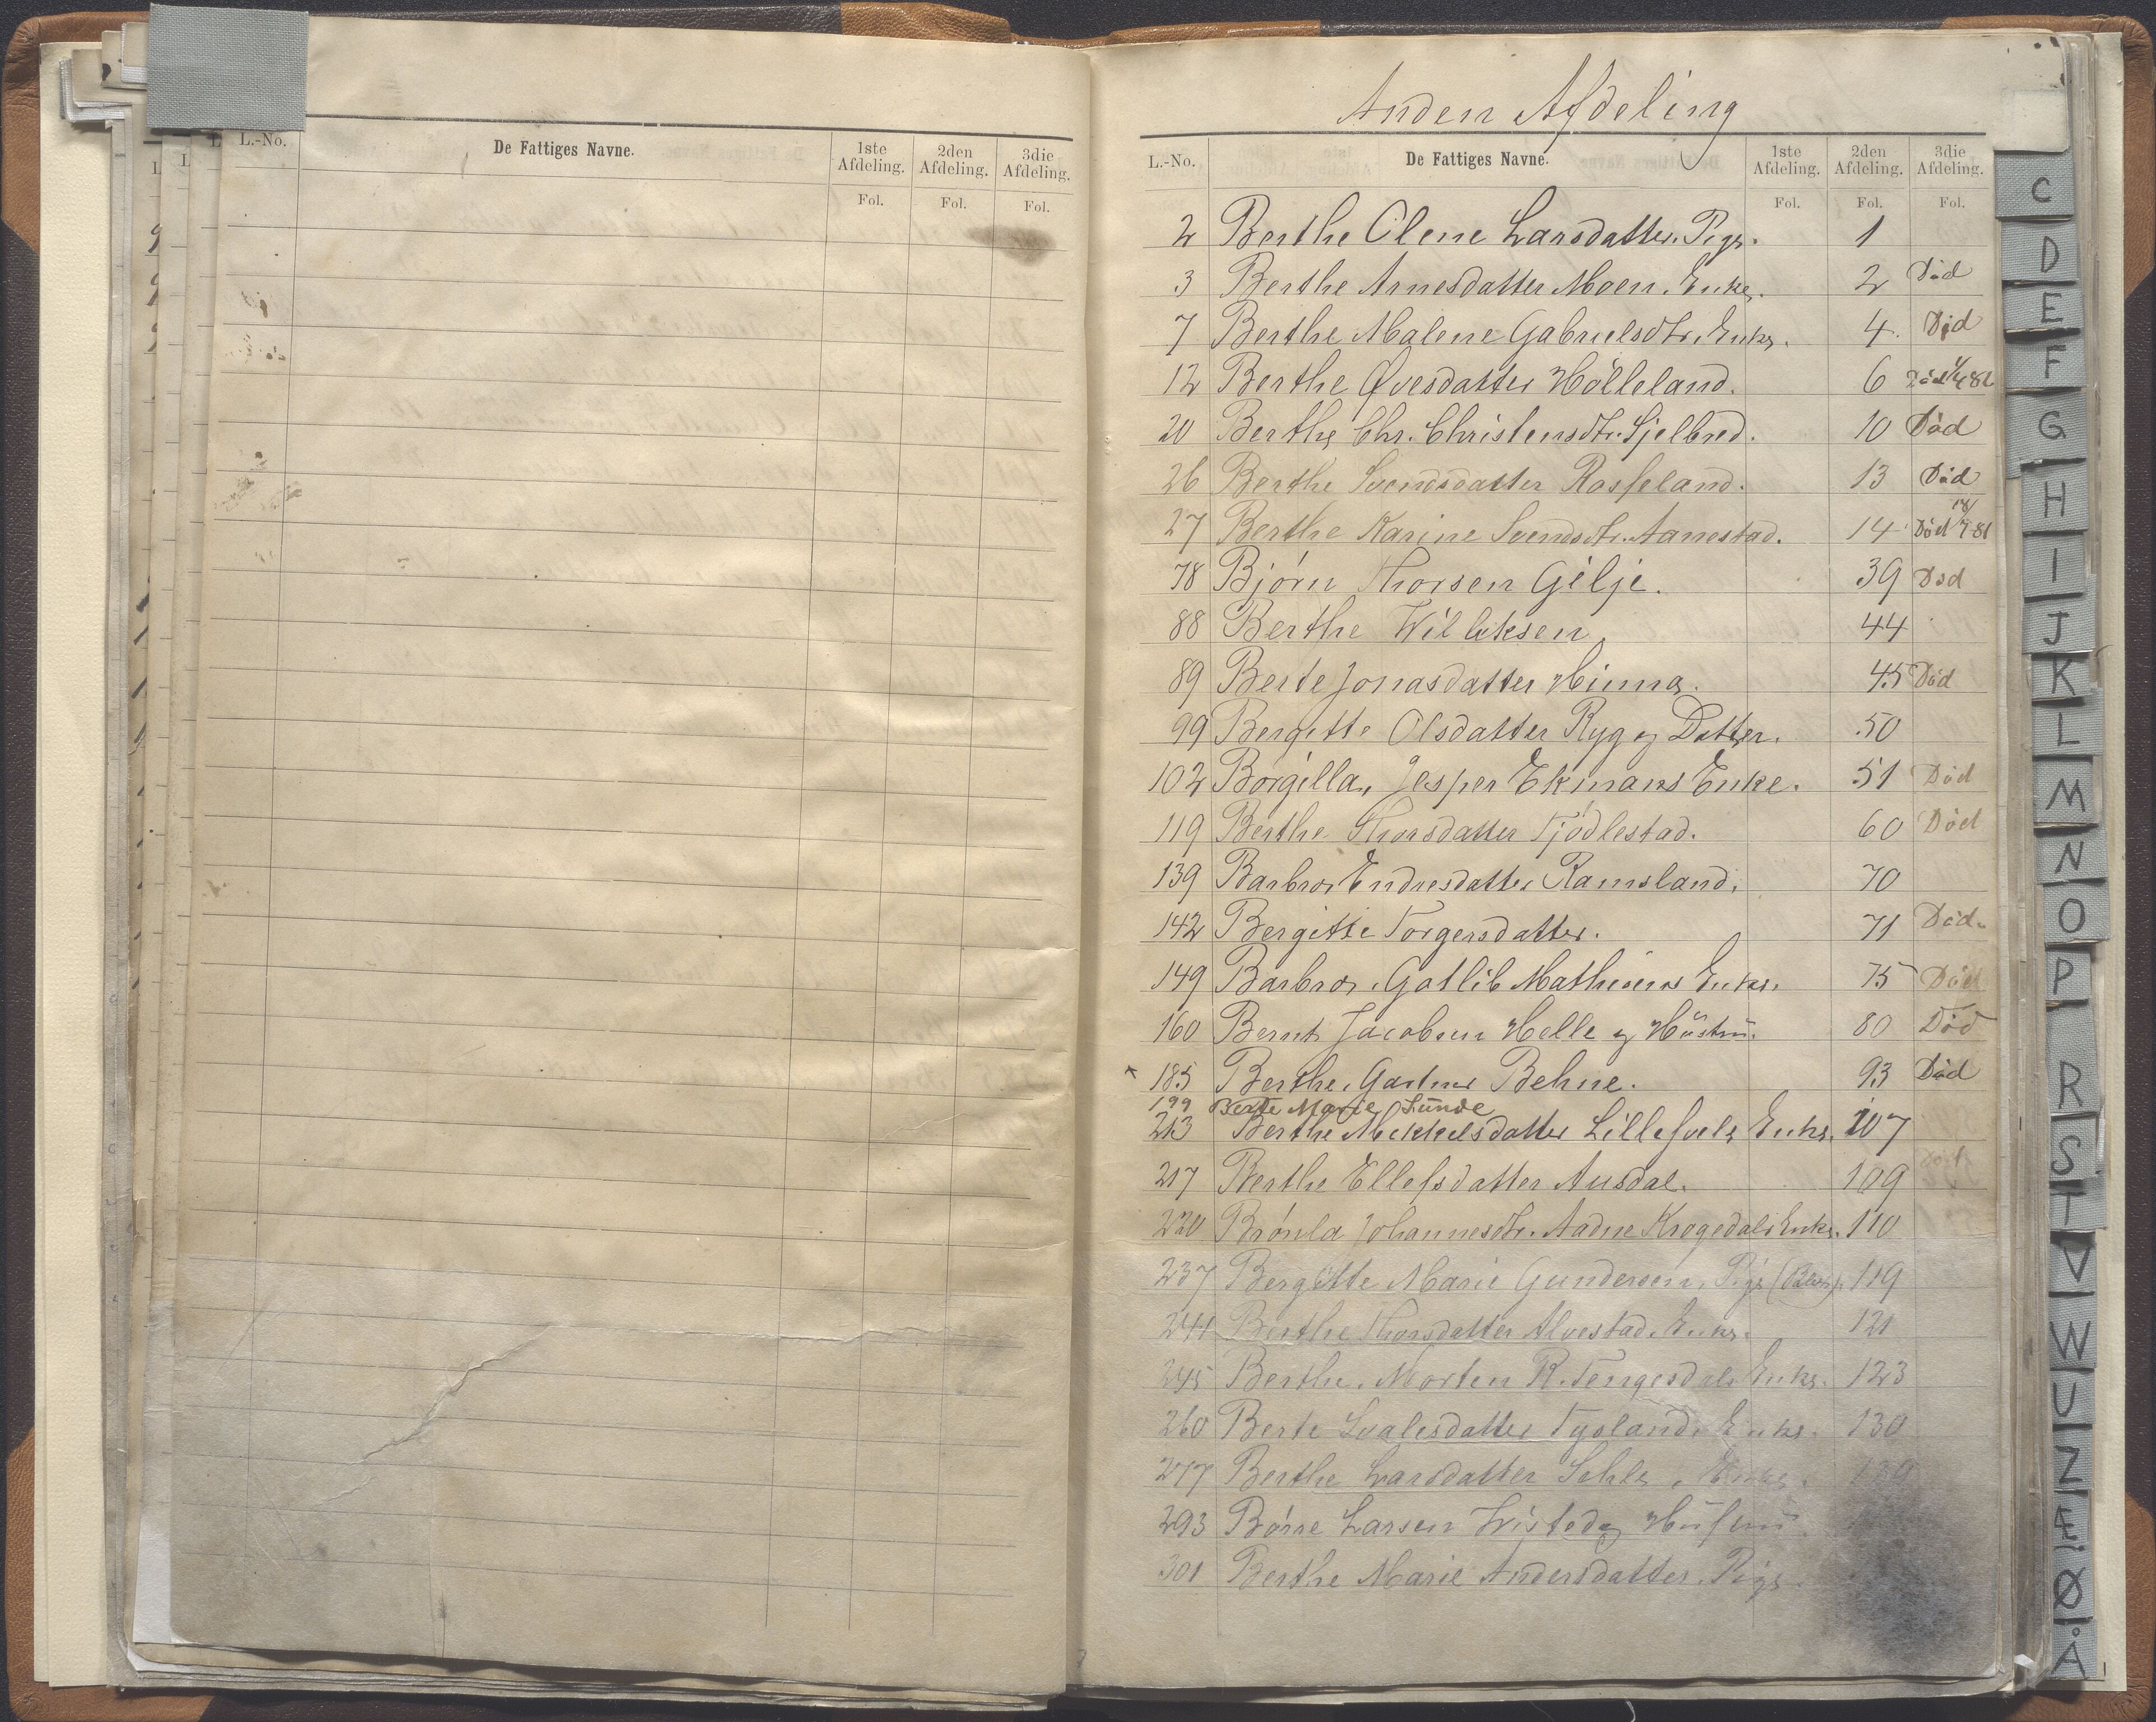 L.-No. De Fattiges Navne. 1ste Afdeling. 2den Afdeling. 3die Afdeling.
Fol. Fol. Fol.
Anden Afdeling
L.-No. De Fattiges Navne. 1ste Afdeling. 2den Afdeling. 3die Afdeling.
Fol. Fol. Fol.
2 Berthe Olene Larsdatter. Pige. 1
3 Berthe Arnesdatter Moen. Enke. 2 Död
7 Berthe Malene Gabrielsdtr. Enke. 4. Død
12 Berthe Qvesdatter Hölleland. 6 Död
20 Berthe Chr. Christensdtr. Sjelbred. 10 Död
26 Berthe Svendsdatter Rosseland. 13 Död
27 Berthe Karine Svendsdtr. Aanestad. 14 Död
78 Bjørn Thorsen Gilje. 39 Død
88 Berthe Williksen. 44
89 Berte Jonasdatter Hinna. 45 Död
99 Bergitte Olsdatter Ryg og Datter. 50
102 Borgilla, Jesper Ekmans Enke. 51 Död
119 Berthe Thorsdatter Tjödlestad. 60 Död
139 Barbro Endresdatter Ramsland. 70
142 Bergitte Torgersdatter. 71 Död.
149 Barbro, Gotlib Mathiesens Enke. 75 Död
160 Bernt Jacobsen Helle og Hustru. 80 Död
185 Berthe, Gartner Behne. 93 Död
199 Berte Marie Sunde
213 Berthe Mikkelsdatter Enke. 107
217 Berthe Ellefsdatter Ausdal. 109 Död
220 Johannesdtr. Aadne Krogedals Enke. 110
237 Bergitte Marie Gundersen, Pige 119
244 Berthe Thorsdatter Alvestad. Enke. 121
245 Berthe, Morten R. Tengesdals Enke. 123
260 Berte Tysland. Enke. 130
277 Berthe Larsdatter Sehle, Enke.
293 Börre Larsen og Hustru
301 Berthe Marie Andersdatter. Pige.
C
D
E
F
G
H
I
J
K
L
M
N
O
P
R
S
T
V
W
U
Z
Æ
Ø
Å